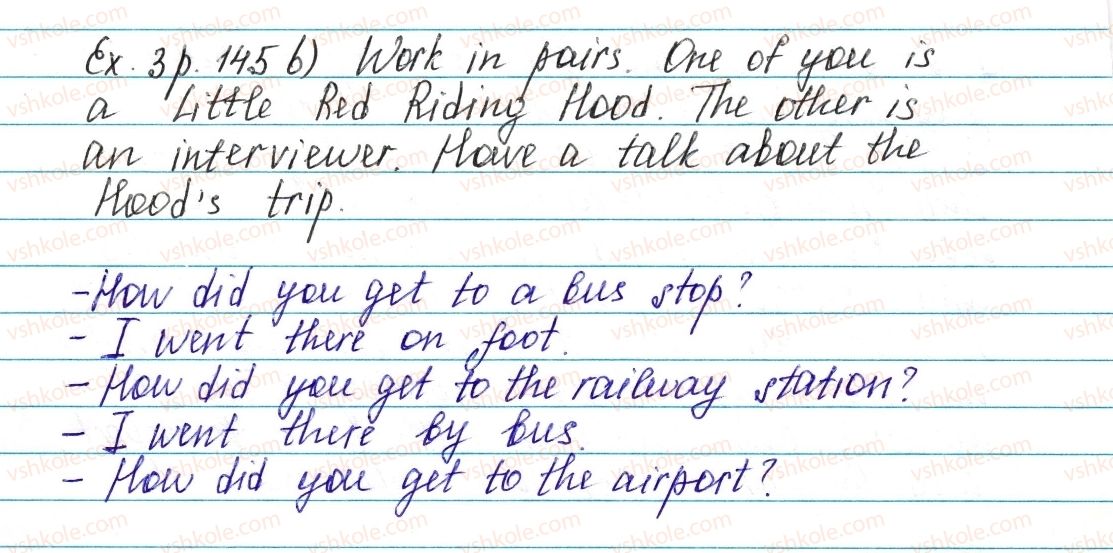 Ex. 3 p. 145 b) Work in pairs. One of you is
a Little Red Riding Hood. The other is
an interviewer. Have a talk about the
Hood's trip.
- How did you get to a bus stop?
- I went there on foot.
- How did you get to the railway station?
- I went there by bus.
- How did you get to the airport?